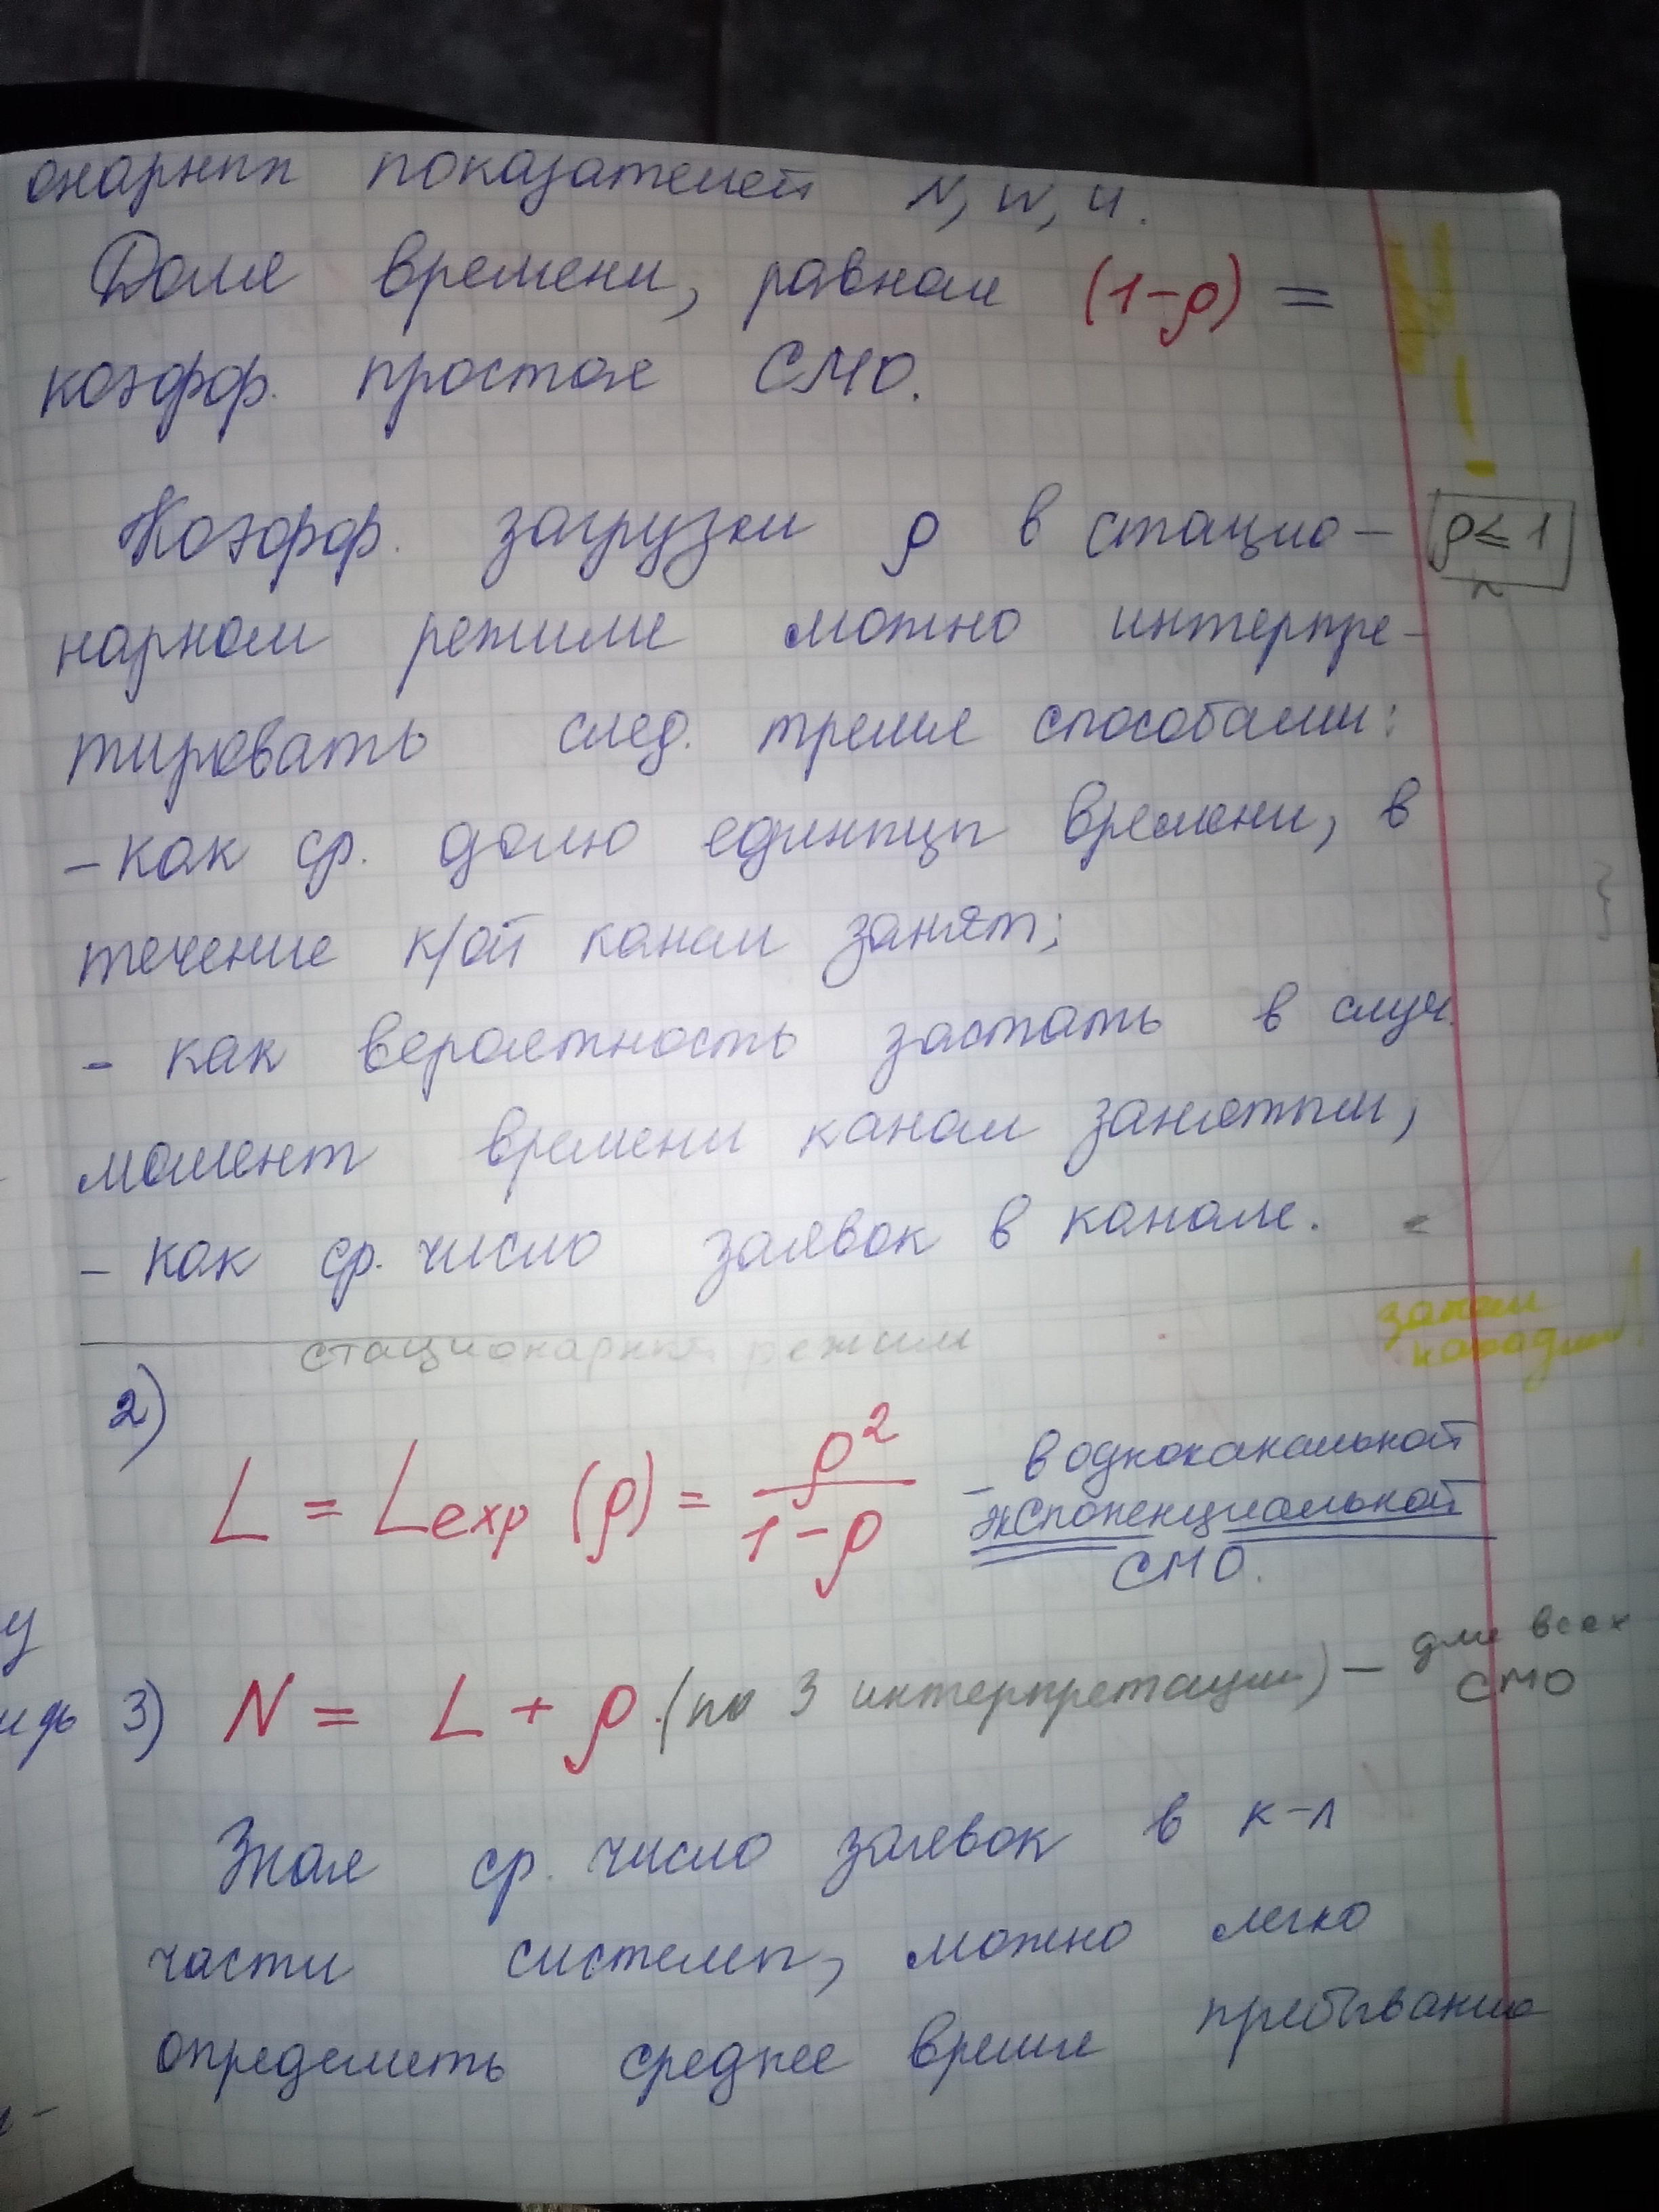 онарных показателей N, W, U.
Доля времени, равная (1-ρ) =
коэфф. простоя СМО.
Коэфф. загрузки ρ в стацио- ρ ≤ 1
нарном режиме можно интерпре-
тировать след. тремя способами:
- как ср. долю единицы времени, в
течение к/ой канал занят;
- как вероятность застать в случ.
момент времени канал занятым,
- как ср. число заявок в канале.
стационарный режим
2)
L = Lexp (ρ) = ρ² / (1-ρ) - в одноканальной
экспоненциальной
СМО.
3) N = L + ρ. (по 3 интерпретации) - для всех
СМО
Зная ср. число заявок в к-л
части системы, можно легко
определить среднее время пребывания